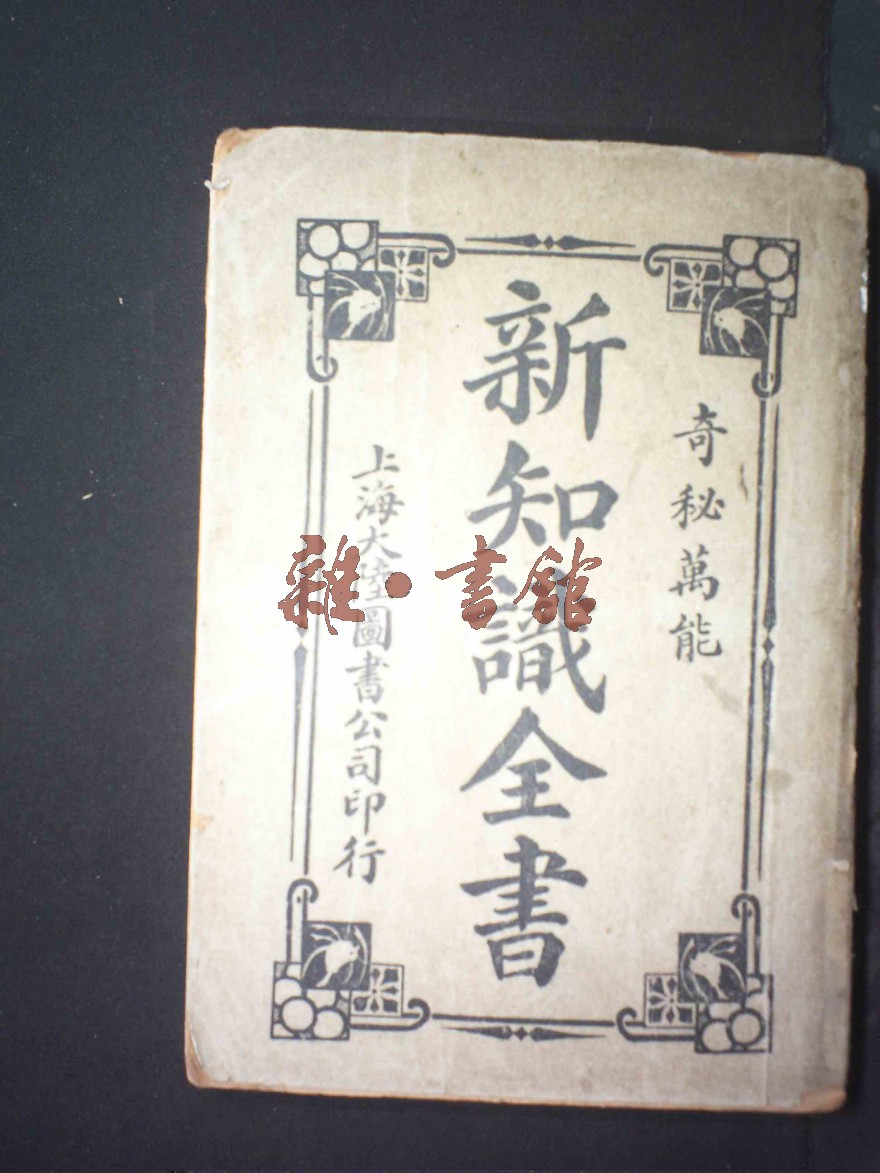 奇秘萬能
新知識全書
上海大陸圖書公司印行
雜·書館